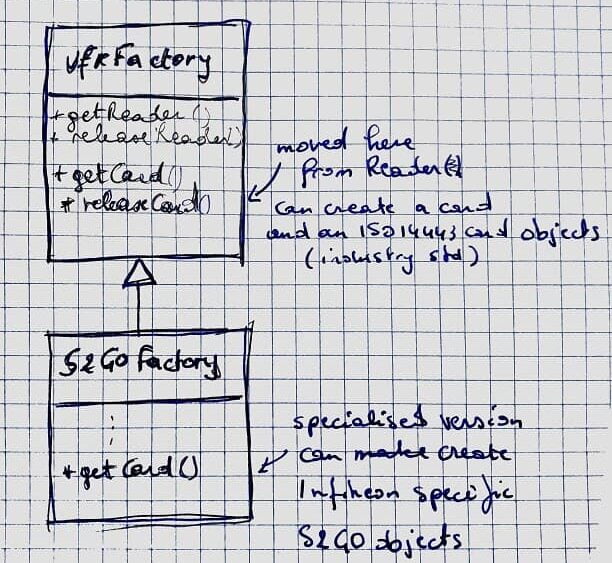 VfRFactory
+ getReader()
+ releaseReader()
+ getCard()
+ releaseCard()
moved here
from Reader
can create a card
and an ISO14443 card objects
(industry std)
S2GO Factory
+ getCard()
specialised version
can make create
Infineon specific
S2GO objects